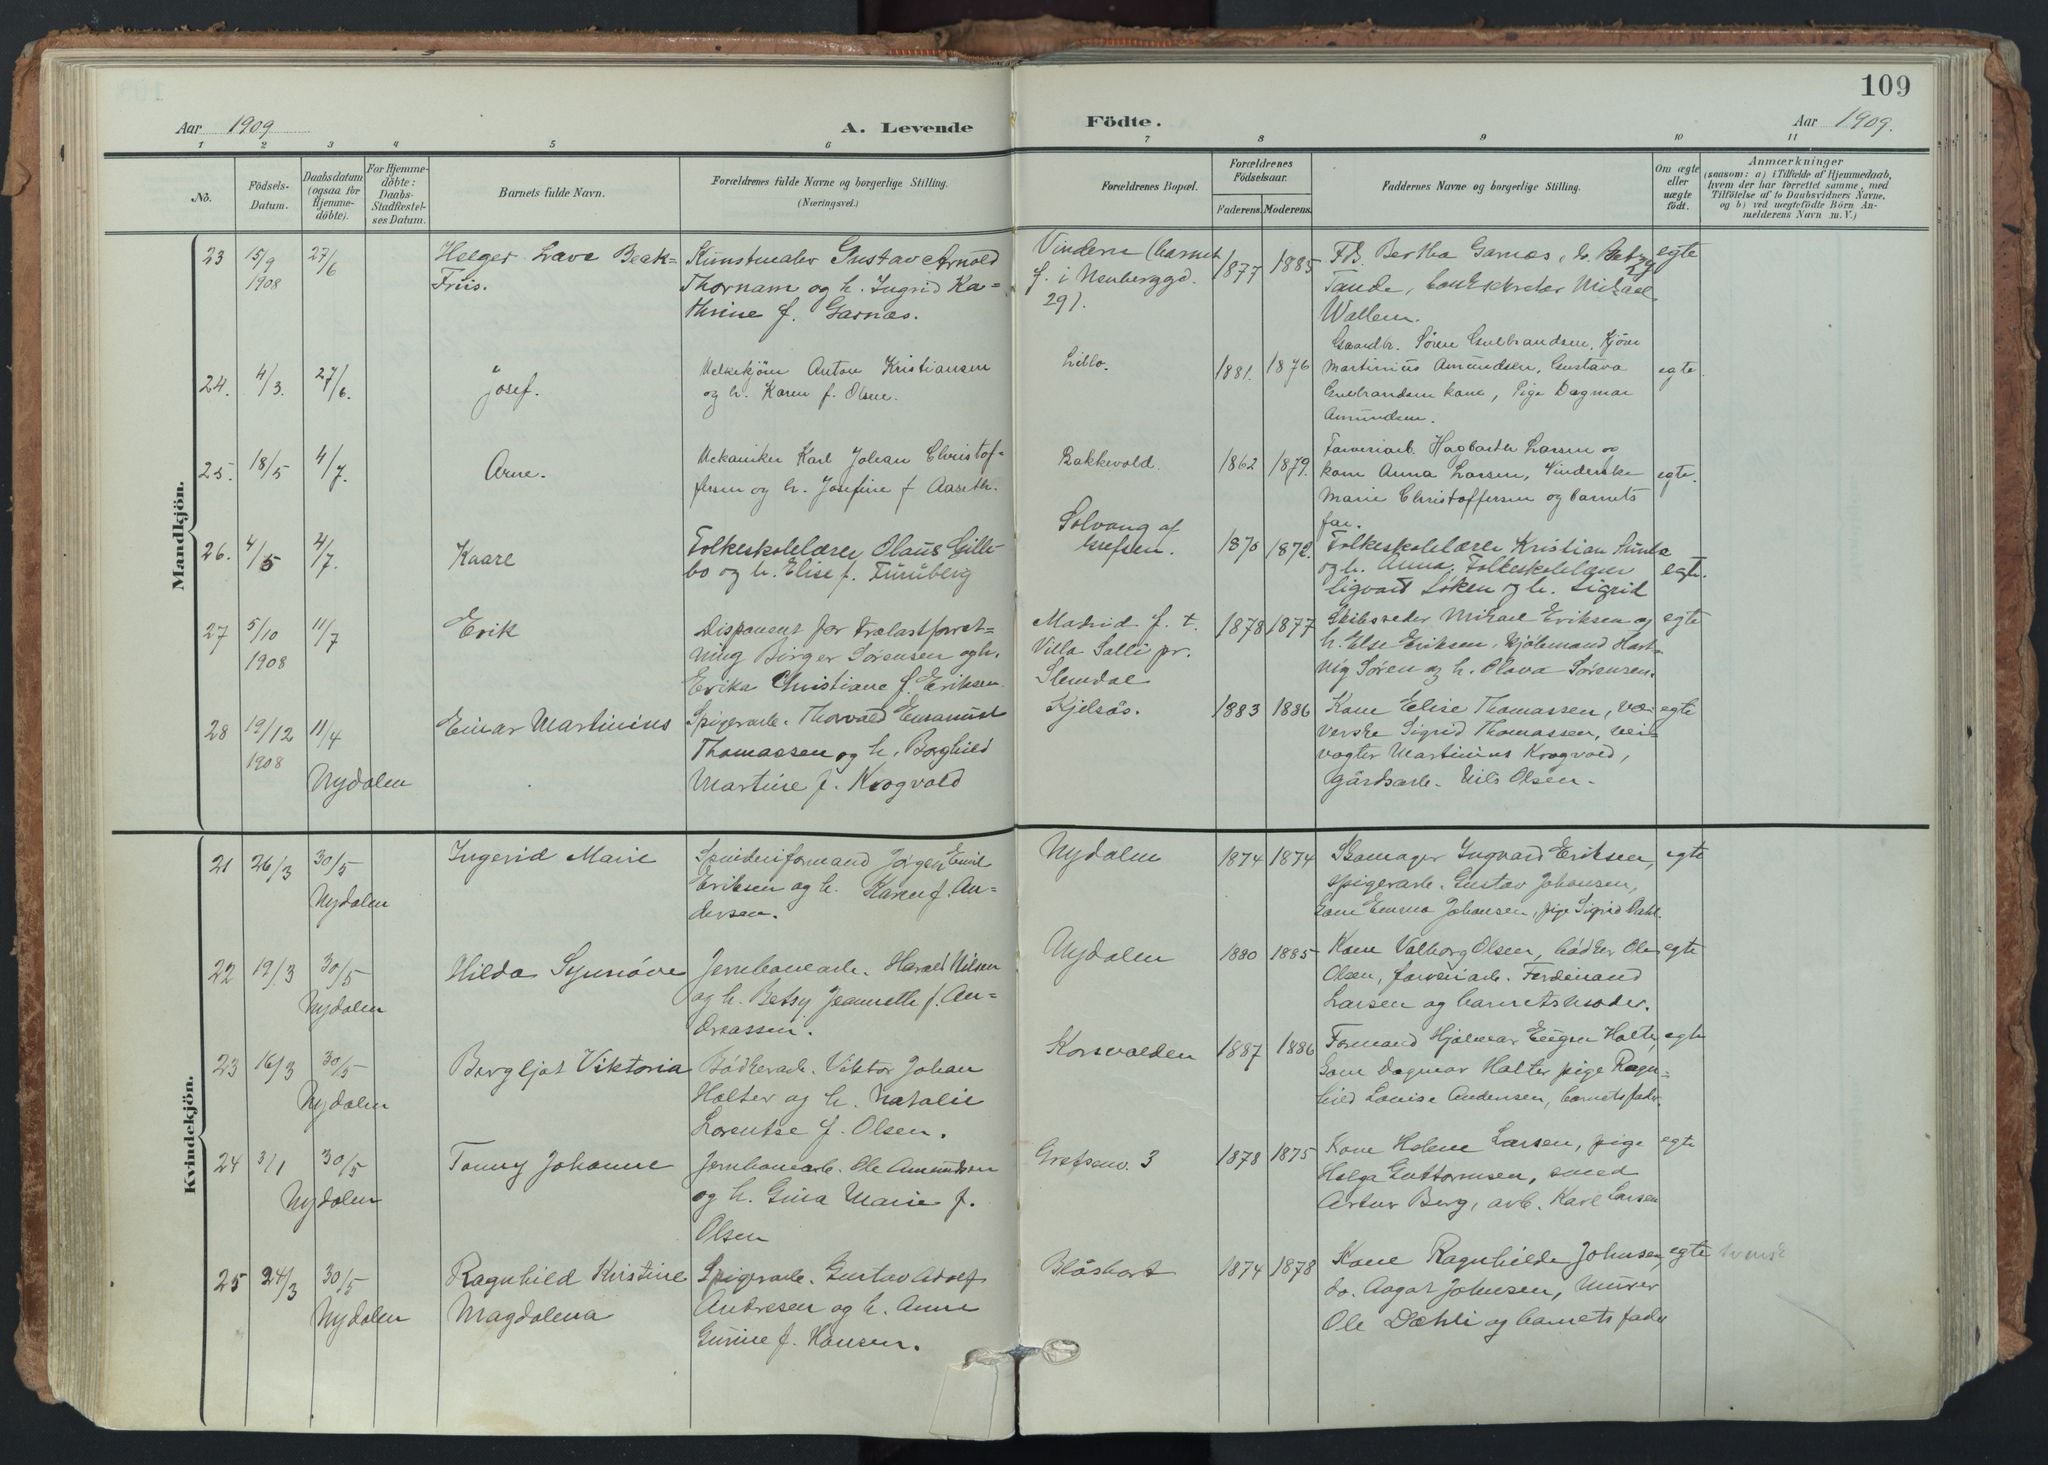 109
Aar 1909
A. Levende
Födte.
Aar 1909.
1 2 3 4 5 6 7 8 9 10 11
No.
Födsels-
Datum.
Daabsdatum
(ogsaa for
Hjemme-
döbte).
For Hjemme-
döbte:
Daabs-
Stadfæstel-
ses Datum.
Barnets fulde Navn.
Forældrenes fulde Navne og borgerlige Stilling.
(Næringsvei.)
Forældrenes Bopæl.
Forældrenes
Födselsaar.
Faderens. Moderens.
Faddernes Navne og borgerlige Stilling.
Om ægte
eller
uægte
födt.
Anmærkninger
(saasom: a) i Tilfælde af Hjemmedaab,
hvem der har forrettet samme, med
Tilföielse af to Daabsvidners Navne,
og b) ved uægtefödte Börn An-
melderens Navn m. V.)
Mandkjön.
23 15/9 1908 27/6
Helger Lave Beck-
Friis.
Kunstmaler Gustav Arnold
Thornam og h. Ingrid Ka-
thrine f. Garnæs.
Vindern (barnet
f. i Neuberggd.
29).
1877 1885
Frk. Bertha Garnæs,
Tande, Mikael
Wallem.
egte
24. 4/3. 27/6.
Josef.
Anton Kristiansen
og h. Karen f. Olsen.
Lillo.
1881. 1876
Gaardbr. Søren Gulbrandsen,
Martinius Amundsen, Gustava
Gulbrandsen kone, Pige Dagmar
Amundsen.
egte.
25. 18/5 4/7.
Arne.
Mekaniker Karl Johan Christof-
fersen og h. Josefine f. Aaseth.
Bakkevold.
1862 1879.
Farveriarb. Hagbarth Larsen og
kone Anna Larsen,
Marie Christoffersen og barnets
far.
egte.
26. 4/5 4/7.
Kaare
Folkeskolelærer Olaus Gille-
bo og h. Elise f. Furuberg
Solvang af
Grefsen.
1870 1872.
Folkeskolelærer Kristian
og h. Anna, Folkeskolelærer
Sigvard Løken og h. Sigrid
egte.
27 5/10 1908 11/7
Erik
Disponent for Trælastforret-
ning Birger Sørensen og h.
Erika Christiane f. Eriksen.
Madrid f. t.
Villa Solli pr.
Slemdal
1878 1877
Skibsreder Mikael Eriksen og
h. Else Eriksen, Kjøbmand Hart-
vig Søren og h. Olava Sørensen.
egte
28 19/12 1908 11/4
Nydalen
Einar Martinius
Spigerarb. Thorvald Emanuel
Thomassen og h. Borghild
Martine f. Krogvold
Kjelsås.
1883 1886
Kone Elise Thomassen, væ-
verske Sigrid Thomassen, vei-
vogter Martinius Krogvold,
gårdsarb. Nils Olsen.
egte
Kvindekjön.
21 26/3 30/5
Nydalen
Ingerid Marie
Spinderiformand Jørgen Emil
Eriksen og h. Karen f. An-
dersen.
Nydalen
1874 1874
Skomager Ingvard Eriksen,
spigerarb. Gustav Johansen,
kone Emma Johansen, pige Sigrid Dahl.
egte
22 19/3 30/5
Nydalen
Hilda Synnøve
Jernbanearb. Harald Nilsen
og h. Betsy Jeanette f. An-
dreassen.
Nydalen
1880 1885
Kone Valborg Olsen, bødker Ole
Olsen, farveriarb. Ferdinand
Larsen og barnets moder.
egte
23 16/3 30/5
Nydalen
Bergljot Viktoria
Bødkerarb. Viktor Johan
Holter og h. Natalie
Lorentse f. Olsen.
Korsvolden
1887 1886
Formand Hjalmar Eugen Holter,
kone Dagmar Holter pige Ragn-
hild Louise Andersen, barnets fader.
egte
24 3/1 30/5
Nydalen
Tonny Johanne
Jernbanearb. Ole Amundsen
og h. Gina Marie f.
Olsen
Grefsenv. 3
1878 1875
Kone Helene Larsen, pige
Helga Guttormsen, smed
Artur Berg, arb. Karl Larsen
egte
25 24/3 30/5
Nydalen
Ragnhild Kristine
Magdalena
Spigerarb. Gustav Adolf
Andresen og h. Anne
Gurine f. Hansen.
Blåsbort
1874 1878
Kone Ragnhilde Johnsen,
do. Aagot Johnsen, murer
Ole Dæhli og barnets fader
egte